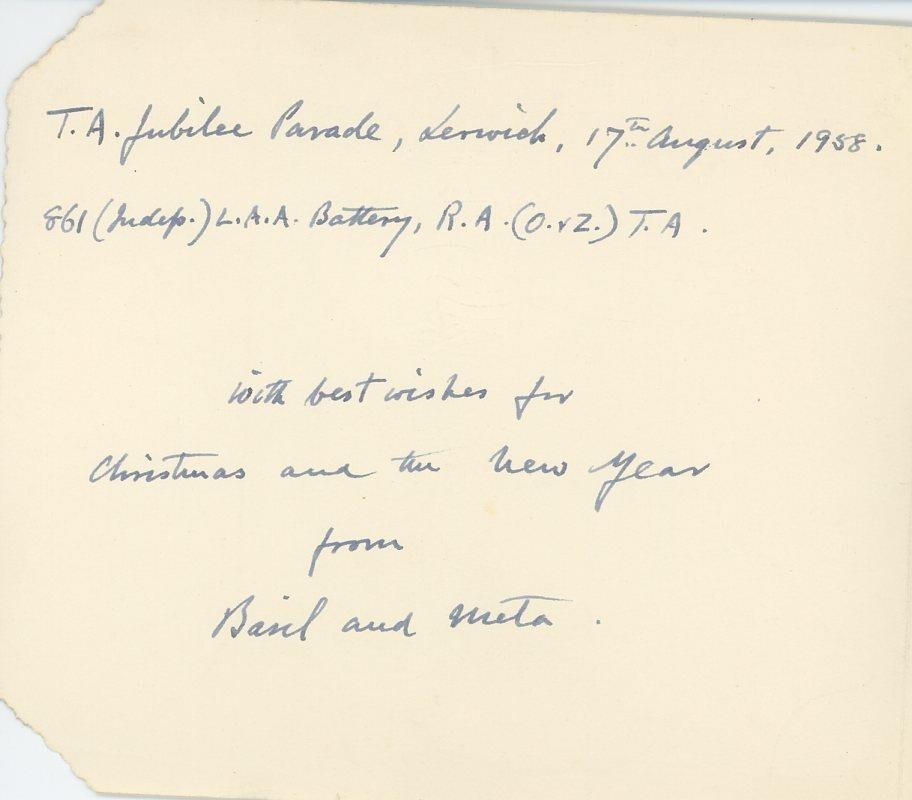 T.A. Jubilee Parade, Lerwick, 17th August, 1958.
861 (Indep.) L.A.A. Battery, R.A. (O. & Z.) T.A.
with best wishes for
Christmas and the New Year
from
Basil and Meta.